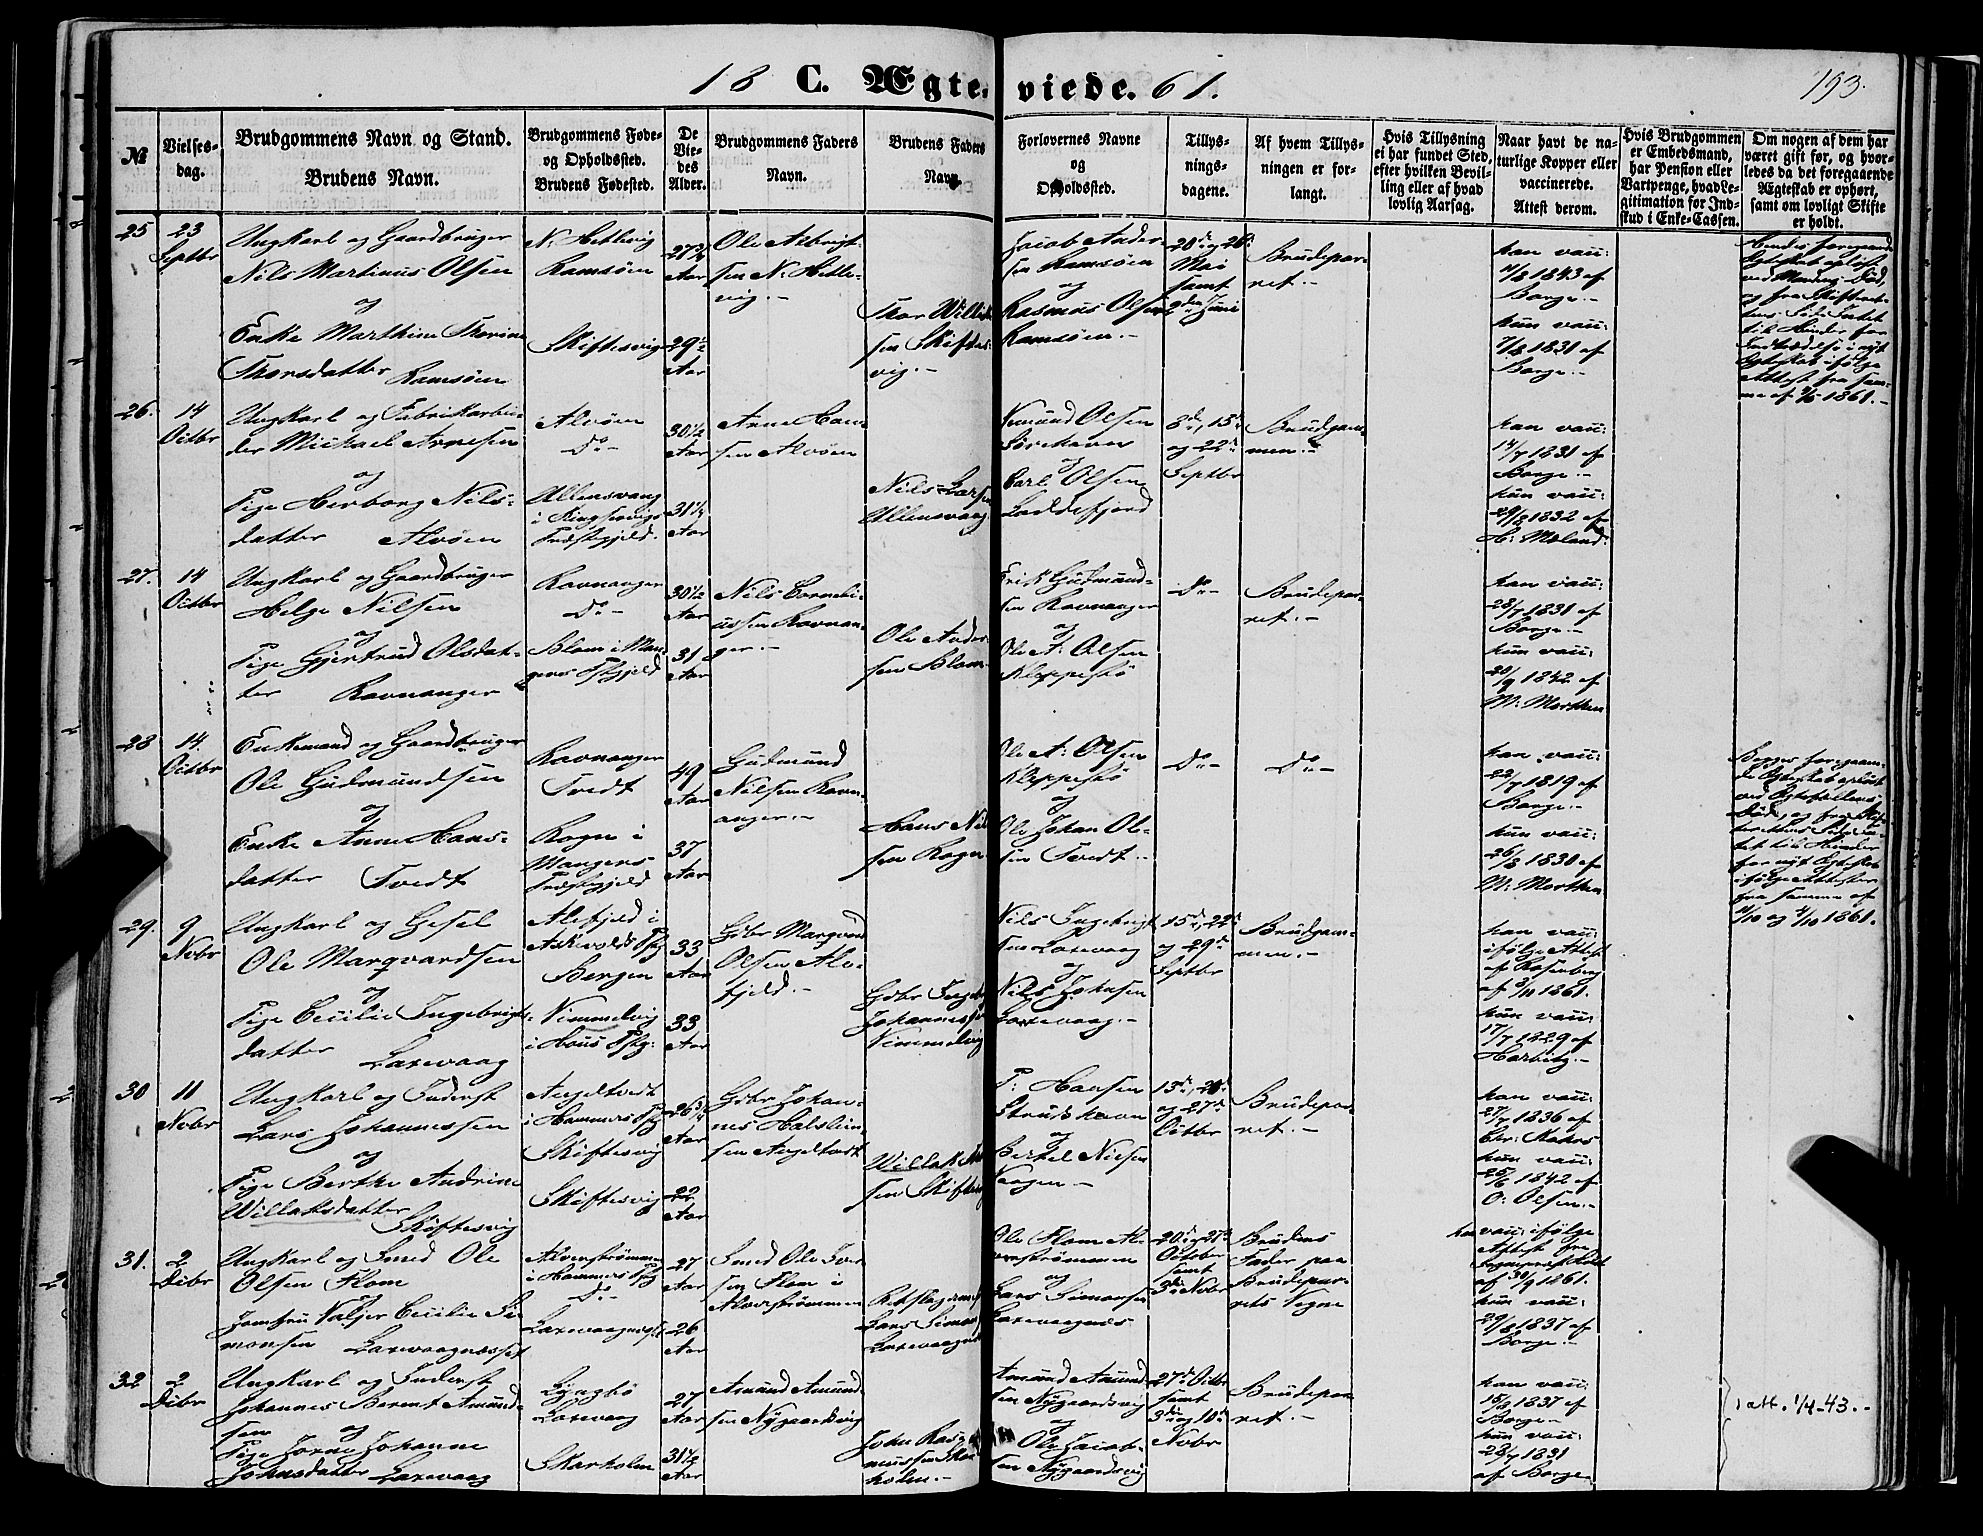 18 C. Ægteviede. 61.
193.
№
Vielses-
dag.
Brudgommens Navn og Stand.
Brudens Navn.
Brudgommens Føde-
og Opholdssted.
Brudens Fødested.
De
Vie-
des
Alder.
Brudgommens Faders
Navn.
Brudens Faders
Navn.
Forlovernes Navne
og
Opholdssted.
Tillys-
nings-
dagene.
Af hvem Tillys-
ningen er for-
langt.
Hvis Tillysning
ei har fundet Sted,
efter hvilken Bevil-
ling eller af hvad
lovlig Aarsag.
Naar havt de na-
turlige Kopper eller
vaccinerede.
Attest derom.
Hvis Brudgommen
er Embedsmand,
har Pension eller
Vartpenge, hvad Le-
gitimation for Ind-
skud i Enke-Cassen.
Om nogen af dem har
været gift før, og hvor-
ledes da det foregaaende
Ægteskab er ophørt,
samt om lovligt Skifte
er holdt.
25
23
Septbr
Ungkarl og Gaardbruger
Nils Martinus Olsen
og
Enke Marthine Thorine
Thorsdatter Ramsöen
N: Hetlevig
Ramsöen
Skiftesvig
27 3/4
Aar
29 1/2
Aar
Ole Albrigt-
sen N: Hetle-
vig.-
Thor Willik
sen Skiftes-
vig.-
Jacob Ander-
sen Ramsöen
og
Rasmus Olsen
Ramsöen.-
20de og 26
Mai
samt
9de Juni
Brudepar-
ret.-
han vacc:
11/8 1843 af
Borge.-
hun vacc:
7/8 1831 af
Borge.-
Hendes foregaaende
Ægteskab oplöst
ved Mandens Död,
og fra Skifteret-
tens Side Intet
til Hinder for
Indtrædelse i nyt
Ægteskab ifølge
Attest fra sam-
me af 1861.-
26.
14
Octbr
Ungkarl og Fabrikarbei-
der Michael Arnesen
og
Pige Herborg Nils-
datter Alvöen
Alvöen
Do-
Ullensvang
i Kingservigs
Præstegjeld.
30 1/2
Aar
31 1/4
Aar
Arne Han-
sen Alvöen
Nils Larsen
Ullensvang
Amund Olsen
Sörehavn
og
Carl Olsen
Laddefjord
8de, 15de
og 22de
Septbr
Brudgom-
men.-
han vacc:
14/7 1831 af
Borge.-
hun vacc:
29/8 1832 af
H: Meland.
27.
14
Octbr
Ungkarl og Gaardbruger
Helge Nilsen
og
Pige Gjertrud Olsdat-
ter Ravnanger
Ravnanger
Do-
Blom i Man-
gers Pstgjeld
30 1/2
Aar
31
Aar
Nils Corneli-
ussen Ravnan-
ger.-
Ole Ander-
sen Blom-
Erik Gudmund-
sen Ravnanger
og
Ole A: Olsen
Kleppestö
Do-
Brudepar-
ret.-
han vacc:
28/7 1831 af
Borge.-
hun vacc:
20/9 1842 af
M: Morthen
28
14.
Octbr
Enkemand og Gaardbruger
Ole Gudmundsen
og
Enke Anne Hans-
datter Tvedt
Ravnanger
Tvedt
Rogn i
Mangers
Præstegjeld
49
Aar
37
Aar
Gudmund
Nilsen Ravn-
anger.-
Hans Nil
sen Rogn
Ole A: Olsen
Kleppestö
og
Ole Johan Ol-
sen Tvedt.-
Do-
Do-
han vacc:
22/7 1819 af
Borge.-
hun vacc:
26/8 1830 af
M: Morthen
Begges foregaaen-
de Ægteskab oplöst
ved Ægtefællens
Död, og fra Skif-
terettens Side In-
tet til Hinder
for nyt Ægteskab
ifølge Attester
fra samme af
2/10 og 4/10 1861.
29.
9
Nobr
Ungkarl og Gesel
Ole Marqvardsen
og
Pige Cecilie Ingebrigts-
datter Laxevaag
Alefjeld i
Askevolds Pstg
Bergen
Vimmelvig
i Hous Pstg:
33
Aar
33
Aar
Gbr Marqvard
Olsen Ale-
fjeld.-
Gbr Ingebr
Johannessen
Vimmelvig
Nils Ingebrigt
sen Laxevaag
og
Nils Johnsen
Laxevaag.-
15de, 22de
og 29de
Septbr
Brudgom-
men.-
han vacc:
ifølge Attest
af Rosenberg
af 2/11 1861.
hun vacc:
17/7 1829 af
Harbitz.-
30
11
Nobr
Ungkarl og Inderst
Lars Johannessen
og
Pige Berthe Andrine
Willaksdatter
Skiftesvig
Angeltvedt
i Hammers Pstg
Skiftesvig
Skiftesvig
26 3/4
Aar
22
Aar
Gbr Johan-
nes Halstein-
sen Angeltvedt
Willak An
sen Skiftesvig
P: Hansen
Strushavn
og
Bertel Nielsen
Vaagen-
13de, 20de
og 27de
Octbr
Brudepar-
ret.-
han vacc:
27/7 1836 af
Chr: Mohrs
hun vacc:
25/6 1842 af
O: Olsen.-
31.
2
Decbr
Ungkarl og Smed Ole
Olsen Flom
og
Jomfru Valjer Cecilie Si-
monsen Laxevaagnæsset
Alverströmmen
i Hammers Pstg
Do-
Laxevaagnæsset
27
Aar
26
Aar
Smed Ole Iver
sen Flom i
Alverströmmen
Rebslagermester
Lars Simonsen
Laxevaagnæs
Ole Flom Al-
verströmmen
og
Lars Simonsen
Laxevaagnæs
20de og 27de
October
samt
3de Nobr
Brudens
Fader paa
Brudepar-
rets Vegne
han vacc: ifølge
Attest fra
af 30/9 1861.
hun vacc:
29/8 1837 af
Borge.-
32
2
Decbr
Ungkarl og Inderst
Johannes Berent Amund-
sen og
Pige Jorne Johanne
Johnsdatter Laxevaag
Lyngbö
Laxevaag
Skarholm
27
Aar
31 1/2
Aar
Amund Amund-
sen Nygaardsvig
John Rasm
mussen Skar-
holm.-
Amund Amund-
sen Nygaardsvig
og
Ole Jacob-
sen Nygaardsvig
27de Octbr
samt
3de og 10de
Nobr
Brudepar-
ret.-
han vacc:
15/8 1837 af
Borge-
hun vacc:
28/7 1831
af Borge
1 att. 1/4-43.-